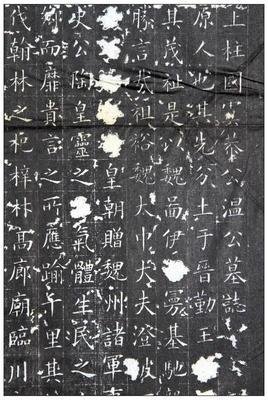 上柱國 恭公温公墓誌
原人也其先分土于晉勤王
其茂祉是以魏啚伊 勇基馳
勝言英祖裕魏大中大夫澄波
皇朝贈魏州諸軍
史公陶皇靈之 氣體生民之
郁而靡貴言之所應踰千里其
伐翰林之杞梓林高廊廟臨川